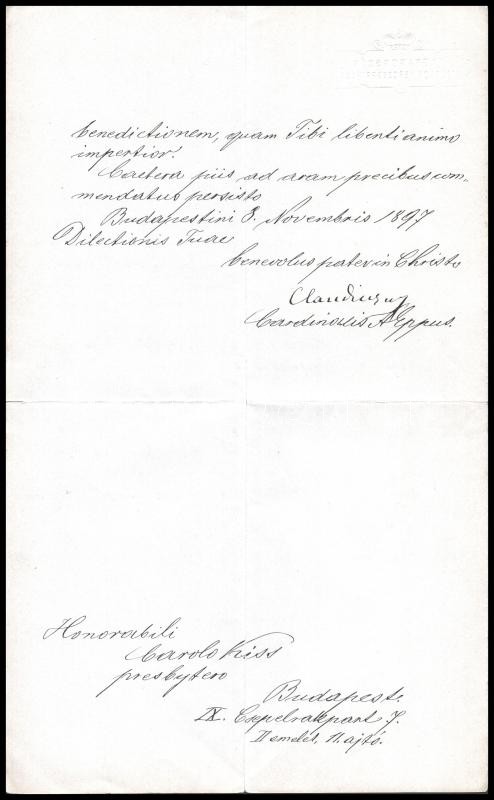 benedictionem, quam Tibi libenti animo
impertior.
Caetera piis ad aram precibus com-
mendatus persisto
Budapestini 8. Novembris 1897
Dilectionis Tuae
benevolus pater in Christo
Claudius
Cardinalis AEppus.
Honorabili
Carolo Kiss
presbytero
Budapest.
IX. Csepelrakpart 7.
II emelet, 11. ajtó.